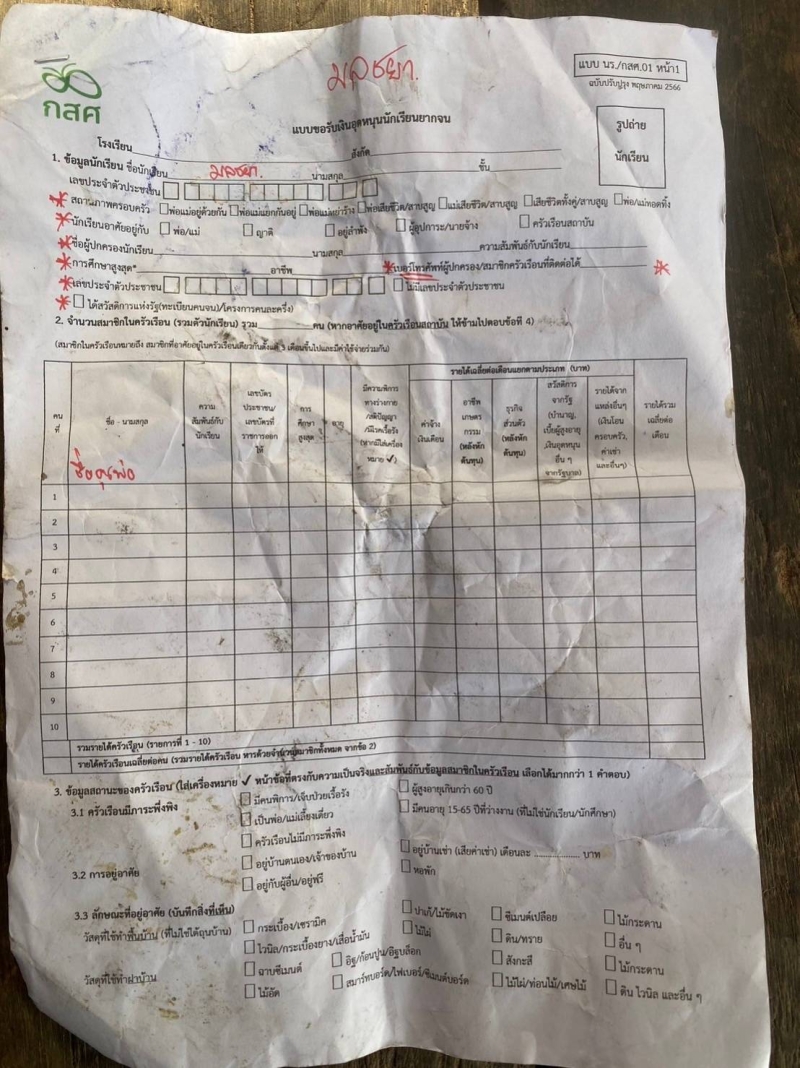 กสศ
มลชยา.
แบบ นร./กสศ.01 หน้า1
ฉบับปรับปรุง พฤษภาคม 2566
แบบขอรับเงินอุดหนุนนักเรียนยากจน
รูปถ่าย
นักเรียน
โรงเรียน สังกัด
1. ข้อมูลนักเรียน ชื่อนักเรียน มลชยา. นามสกุล ชั้น
เลขประจำตัวประชาชน
* สถานภาพครอบครัว พ่อแม่อยู่ด้วยกัน พ่อแม่แยกกันอยู่ พ่อแม่หย่าร้าง พ่อเสียชีวิต/สาบสูญ แม่เสียชีวิต/สาบสูญ เสียชีวิตทั้งคู่/สาบสูญ พ่อ/แม่ทอดทิ้ง
* นักเรียนอาศัยอยู่กับ พ่อ/แม่ ญาติ อยู่ลำพัง ผู้อุปการะ/นายจ้าง ครัวเรือนสถาบัน
* ชื่อผู้ปกครองนักเรียน นามสกุล ความสัมพันธ์กับนักเรียน
* การศึกษาสูงสุด* อาชีพ * เบอร์โทรศัพท์ผู้ปกครอง/สมาชิกครัวเรือนที่ติดต่อได้ *
* เลขประจำตัวประชาชน ไม่มีเลขประจำตัวประชาชน
* ได้สวัสดิการแห่งรัฐ(ทะเบียนคนจน)/โครงการคนละครึ่ง)
2. จำนวนสมาชิกในครัวเรือน (รวมตัวนักเรียน) รวม คน (หากอาศัยอยู่ในครัวเรือนสถาบัน ให้ข้ามไปตอบข้อที่ 4)
(สมาชิกในครัวเรือนหมายถึง สมาชิกที่อาศัยอยู่ในครัวเรือนเดียวกันตั้งแต่ 3 เดือนขึ้นไปและมีค่าใช้จ่ายร่วมกัน)
รายได้เฉลี่ยต่อเดือนแยกตามประเภท (บาท)
คนที่
ชื่อ - นามสกุล
ความสัมพันธ์กับนักเรียน
เลขบัตรประชาชน/เลขบัตรที่ราชการออกให้
การศึกษาสูงสุด
อายุ
มีความพิการทางร่างกาย/สติปัญญา/มีโรคเรื้อรัง (หากมีใส่เครื่องหมาย ✓)
ค่าจ้างเงินเดือน
อาชีพเกษตรกรรม (หลังหักต้นทุน)
ธุรกิจส่วนตัว (หลังหักต้นทุน)
สวัสดิการจากรัฐ (บำนาญ, เบี้ยผู้สูงอายุ เงินอุดหนุนอื่น ๆ จากรัฐบาล)
รายได้จากแหล่งอื่นๆ (เงินโอนครอบครัว, ค่าเช่า และอื่นๆ)
รายได้รวมเฉลี่ยต่อเดือน
ชื่อคุณพ่อ
1
2
3
4
5
6
7
8
9
10
รวมรายได้ครัวเรือน (รายการที่ 1 - 10)
รายได้ครัวเรือนเฉลี่ยต่อคน (รวมรายได้ครัวเรือน หารด้วยจำนวนสมาชิกทั้งหมด จากข้อ 2)
3. ข้อมูลสถานะของครัวเรือน (ใส่เครื่องหมาย ✓ หน้าข้อที่ตรงกับความเป็นจริงและสัมพันธ์กับข้อมูลสมาชิกในครัวเรือน เลือกได้มากกว่า 1 คำตอบ)
3.1 ครัวเรือนมีภาระพึ่งพิง มีคนพิการ/เจ็บป่วยเรื้อรัง ผู้สูงอายุเกินกว่า 60 ปี
เป็นพ่อ/แม่เลี้ยงเดี่ยว มีคนอายุ 15-65 ปีที่ว่างงาน (ที่ไม่ใช่นักเรียน/นักศึกษา)
ครัวเรือนไม่มีภาระพึ่งพิง
3.2 การอยู่อาศัย อยู่บ้านตนเอง/เจ้าของบ้าน อยู่บ้านเช่า (เสียค่าเช่า) เดือนละ .................... บาท
อยู่กับผู้อื่น/อยู่ฟรี หอพัก
3.3 ลักษณะที่อยู่อาศัย (บันทึกสิ่งที่เห็น)
วัสดุที่ใช้ทำพื้นบ้าน (ที่ไม่ใช่ใต้ถุนบ้าน) กระเบื้อง/เซรามิค ปาเก้/ไม้ขัดเงา ซีเมนต์เปลือย ไม้กระดาน
ไวนิล/กระเบื้องยาง/เสื่อน้ำมัน ไม้ไผ่ ดิน/ทราย อื่น ๆ
วัสดุที่ใช้ทำฝาบ้าน ฉาบซีเมนต์ อิฐ/ก้อนปูน/อิฐบล็อก สังกะสี ไม้กระดาน
ไม้อัด สมาร์ทบอร์ด/ไฟเบอร์/ซีเมนต์บอร์ด ไม้ไผ่/ท่อนไม้/เศษไม้ ดิน ไวนิล และอื่น ๆ